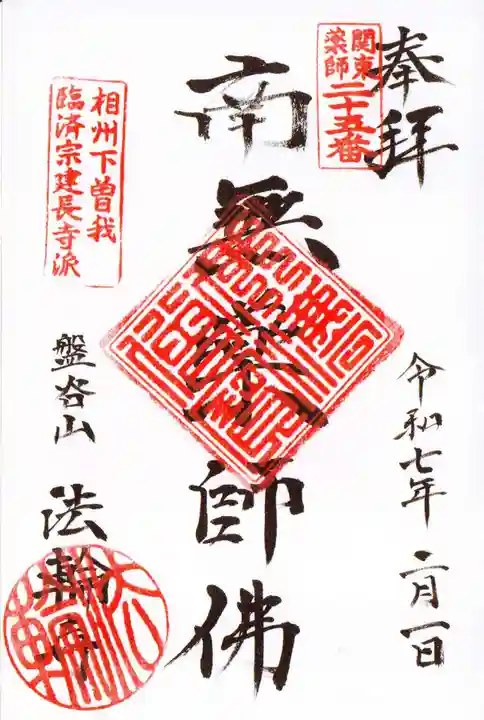 奉拝
関東
薬師
二十五番
南無薬師佛
令和七年二月一日
相州下曽我
臨済宗建長寺派
盤谷山
法輪寺